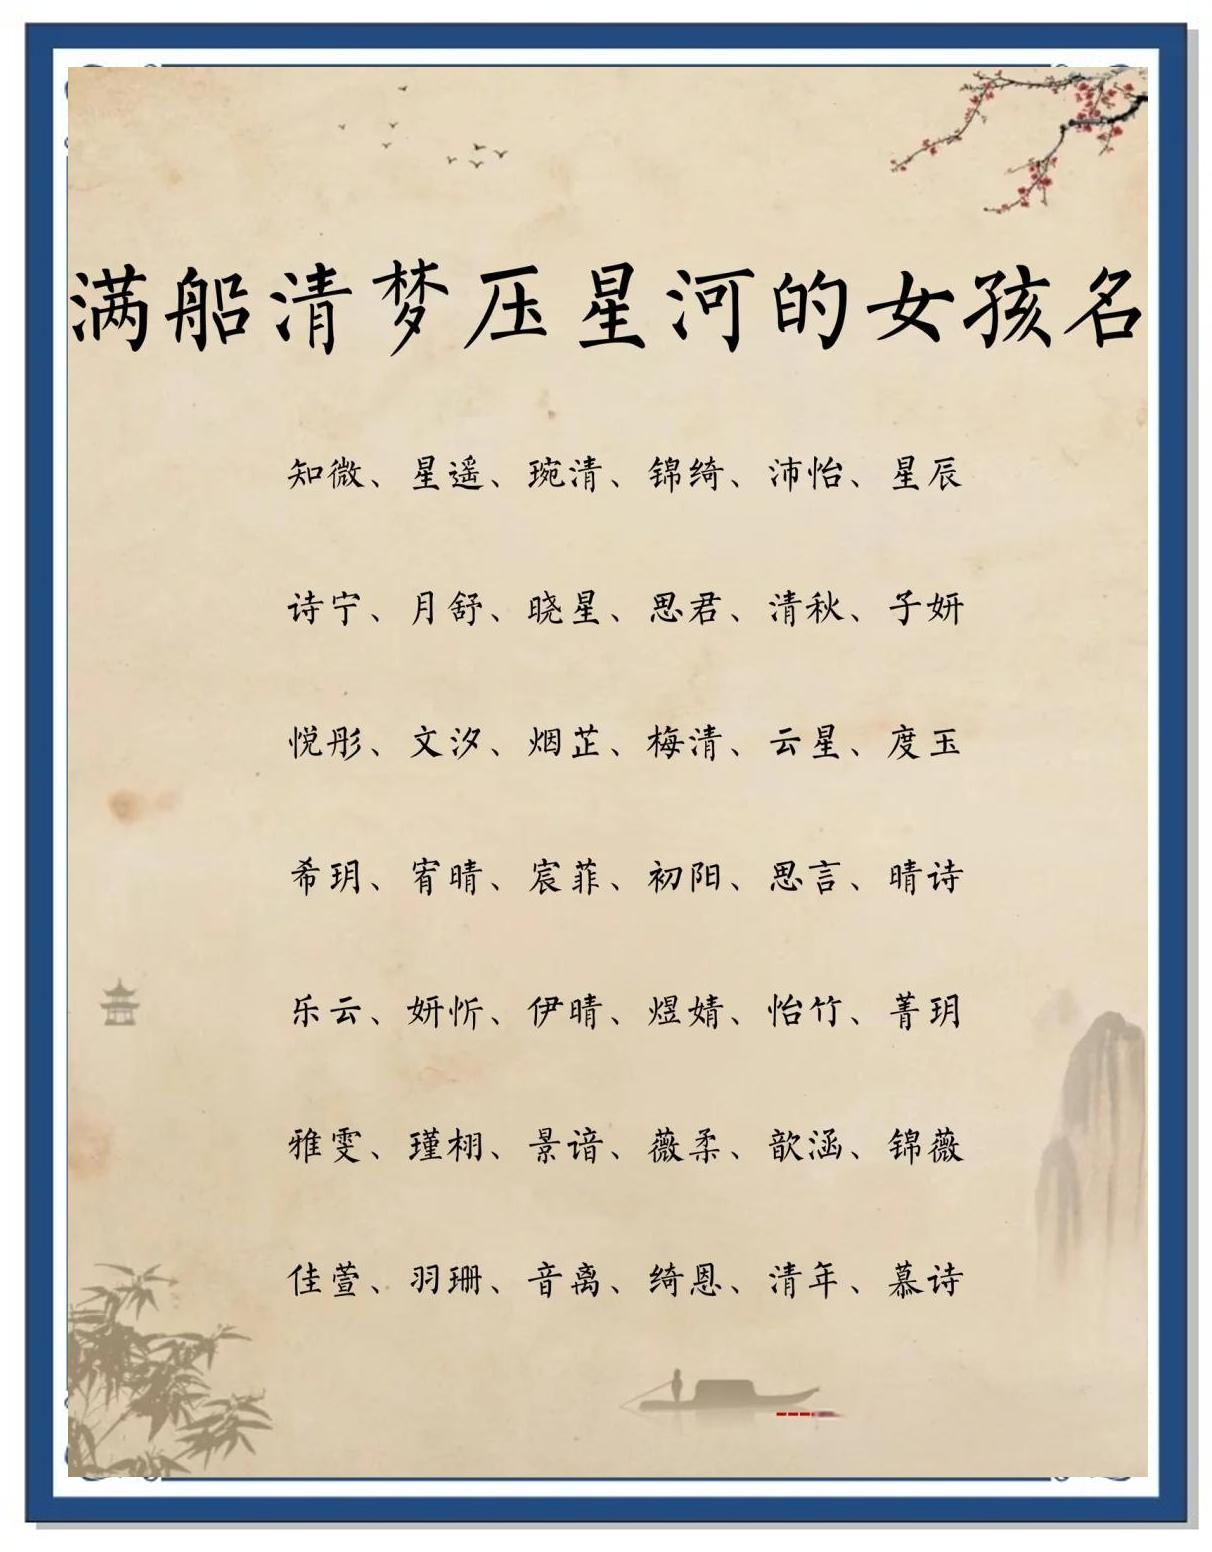 满船清梦压星河的女孩名
知微、星遥、琬清、锦绮、沛怡、星辰
诗宁、月舒、晓星、思君、清秋、子妍
悦彤、文汐、烟芷、梅清、云星、度玉
希玥、宥晴、宸菲、初阳、思言、晴诗
乐云、妍忻、伊晴、煜婧、怡竹、菁玥
雅雯、瑾栩、景谙、薇柔、歆涵、锦薇
佳萱、羽珊、音离、绮恩、清年、慕诗